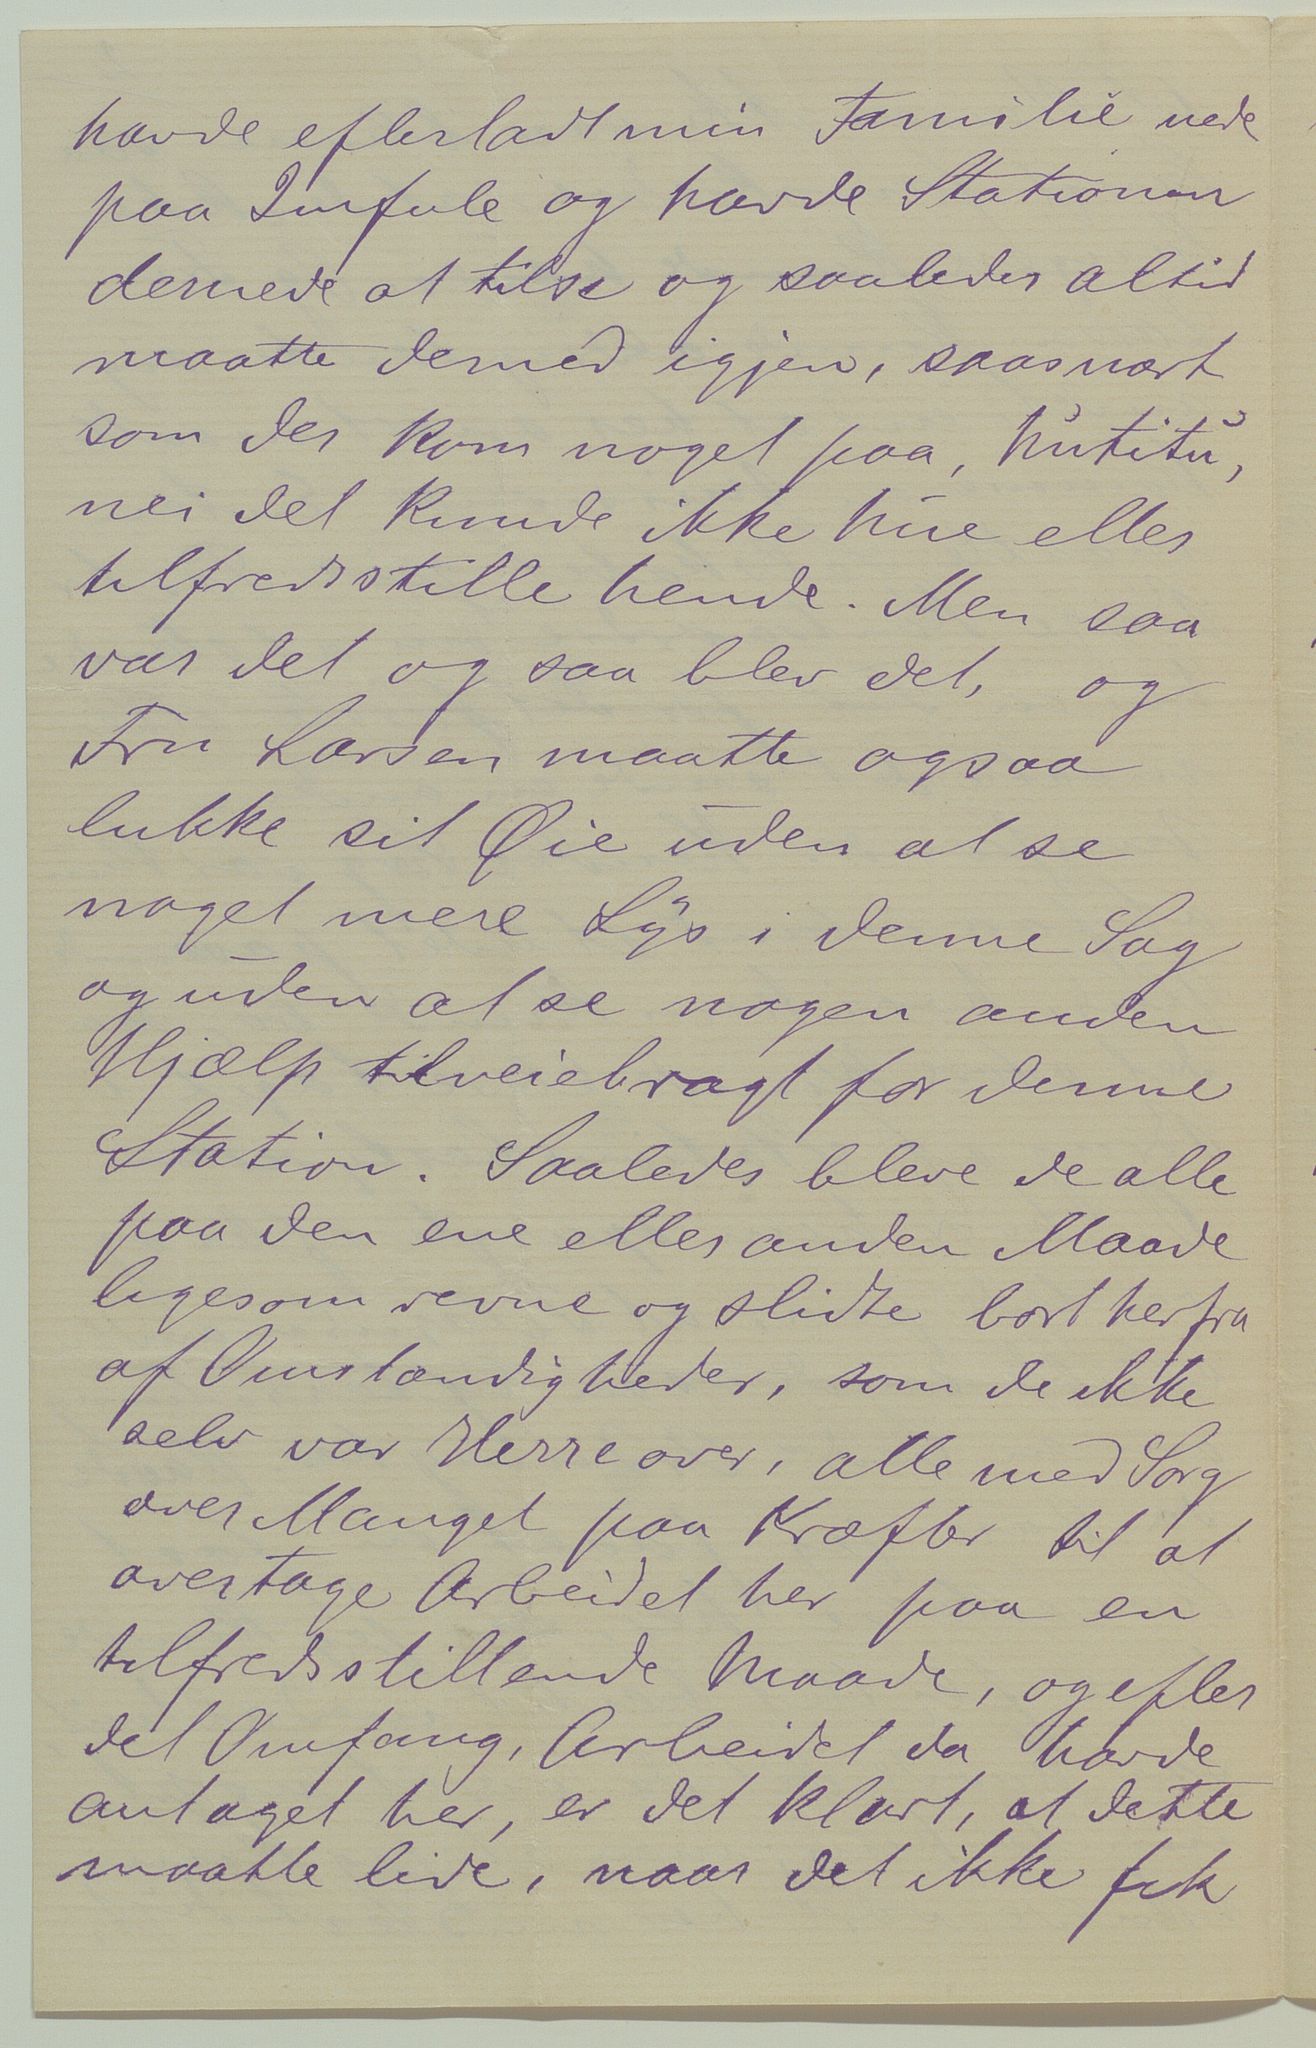 havde efterladt min Familie nede
paa Imfule og havde Stationen
dernede at tilse og saaledes altid
maatte derned igjen, saasnart
som der kom noget paa,
nei det kunde ikke hue eller
tilfredsstille hende. Men saa
var det og saa blev det, og
Fru Larsen maatte ogsaa
lukke sit Øie uden at se
noget mere Lys i denne Sag
og uden at se nogen anden
Hjælp tilveiebragt for denne
Station. Saaledes bleve de alle
paa den ene eller anden Maade
ligesom revne og slidte bort herfra
af Omstændigheder, som de ikke
selv var Herre over, alle med Sorg
over Mangel paa Kræfter til at
overtage Arbeidet her paa en
tilfredsstillende Maade, og efter
det Omfang, Arbeidet da havde
antaget her, er det klart, at dette
maatte lide, naar det ikke fik